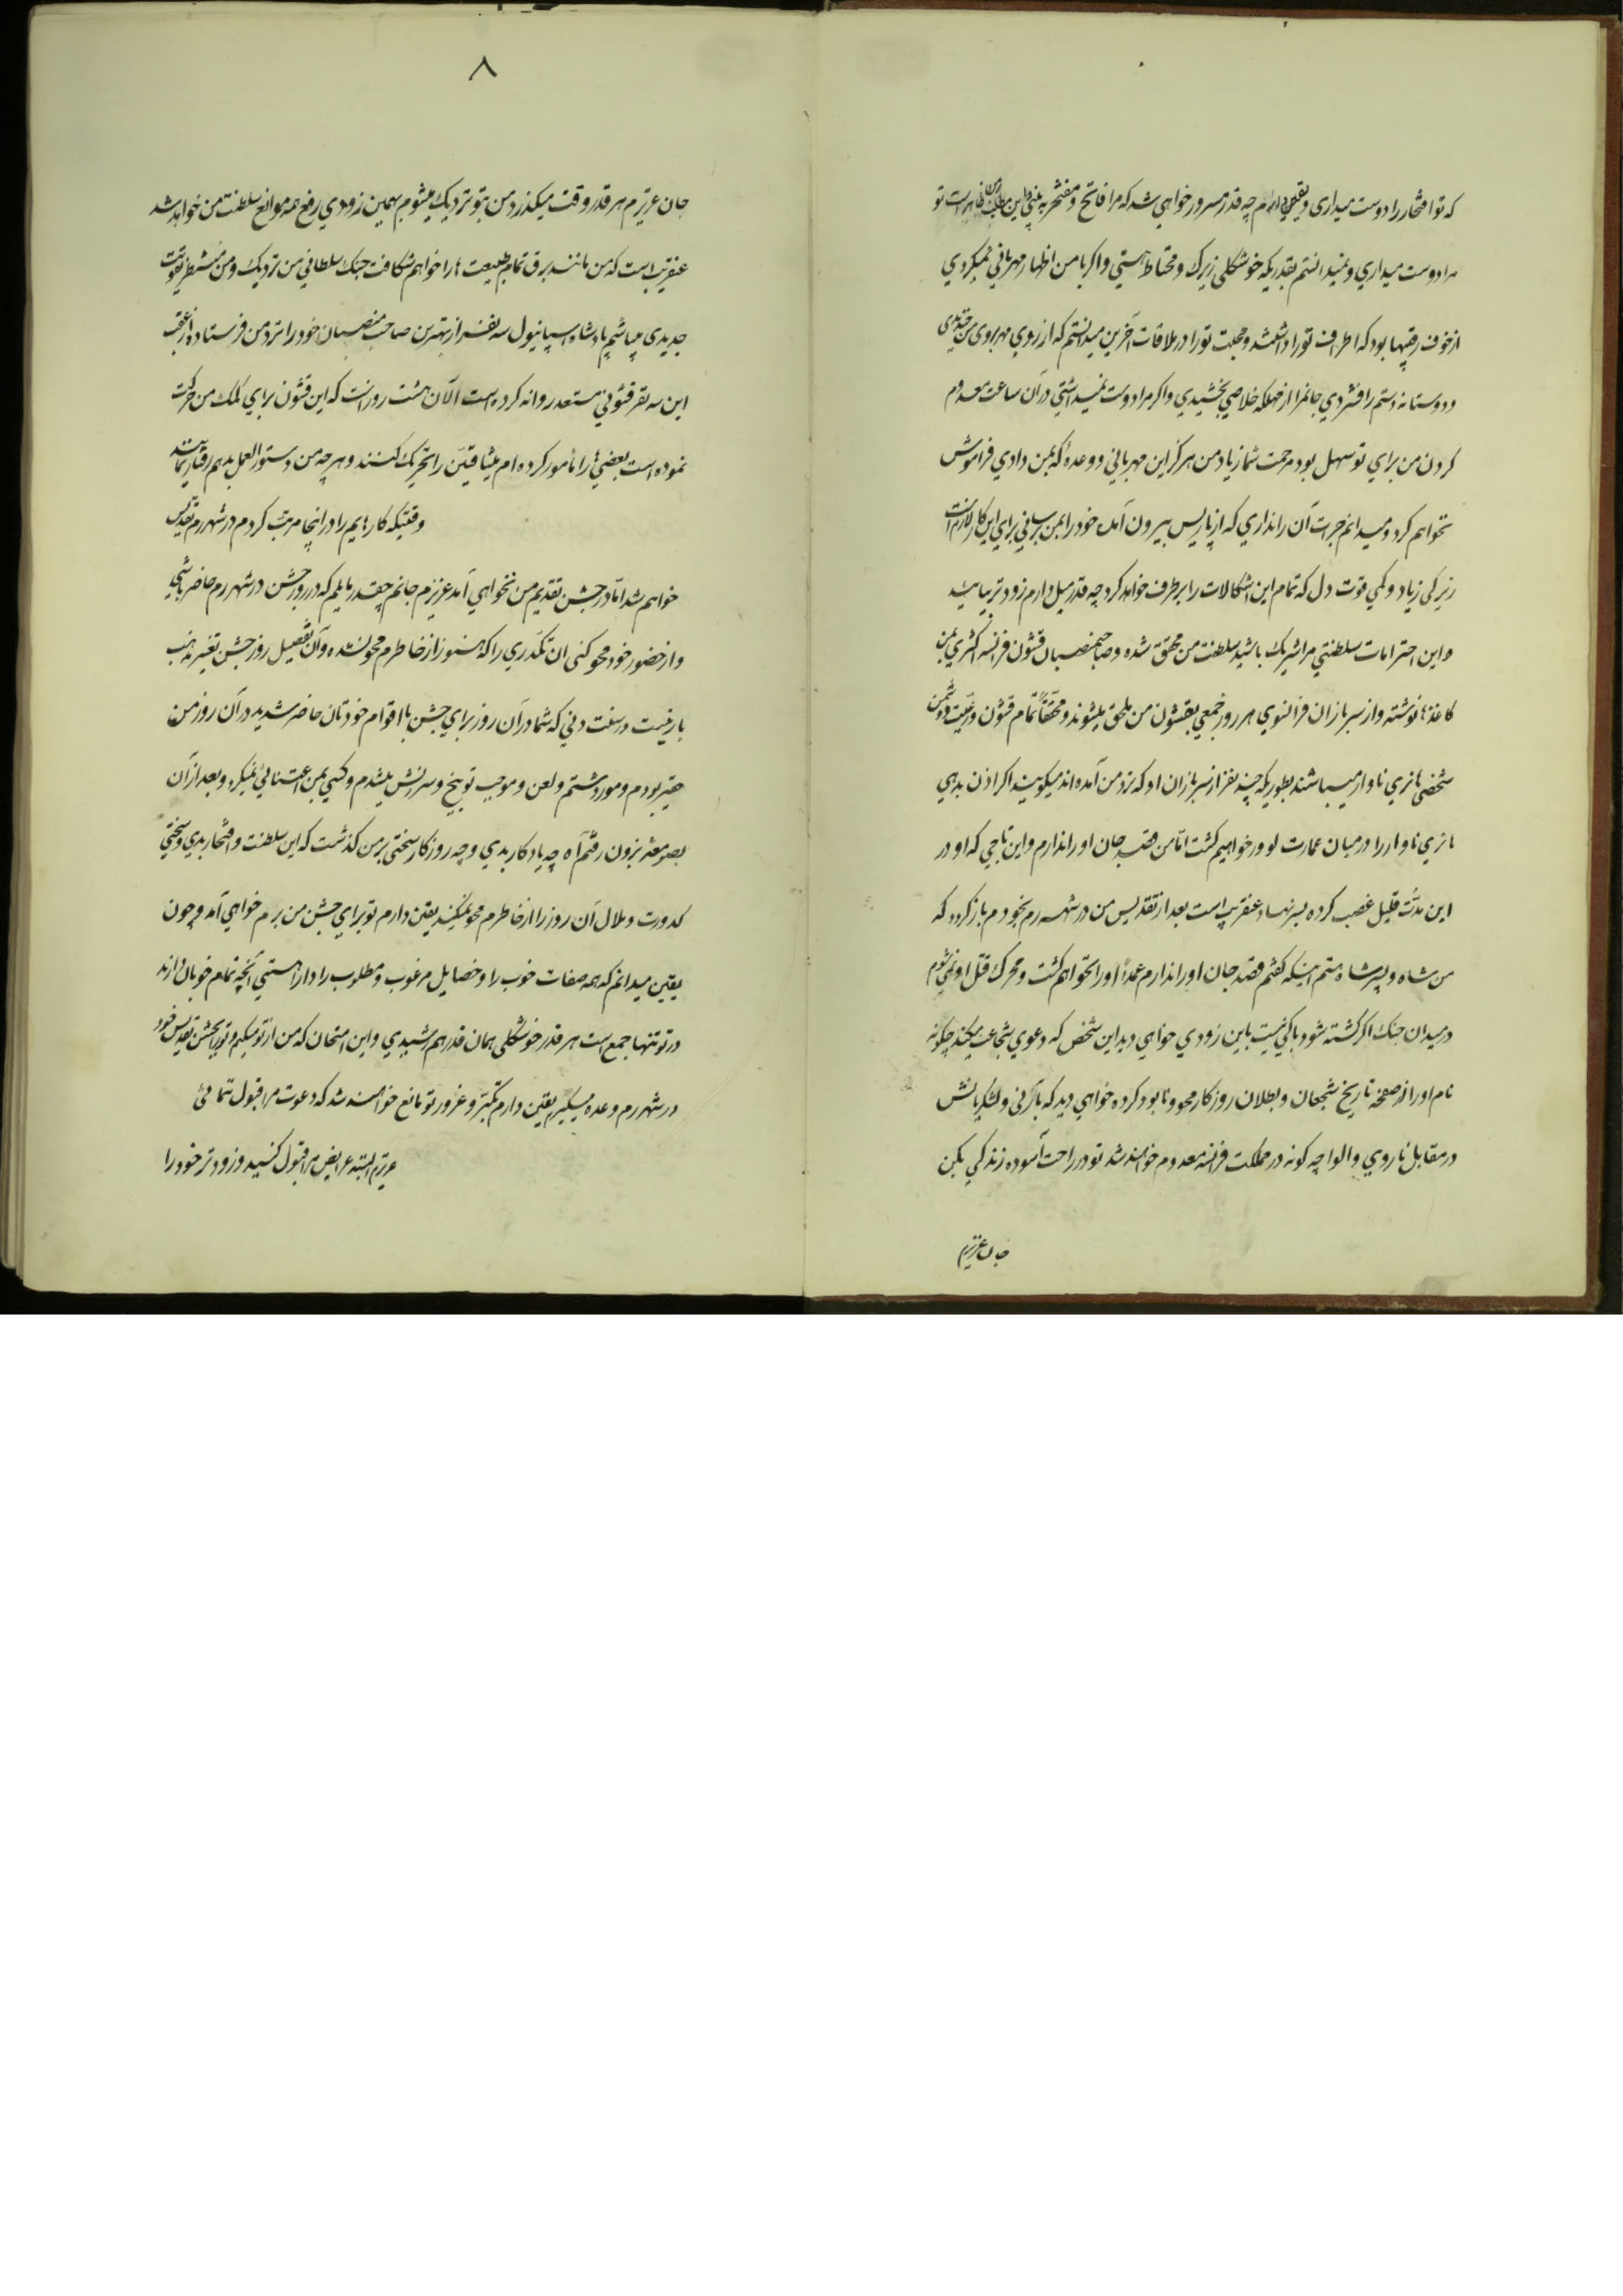 که تو افتخار را دوست میداری و یقین دارم چه قدر مسرور خواهی شد که مرا فاتح و مفتخر به بینی این مطلب ظاهر است تو
مرا دوست میداری و نمیدانستم بقدریکه خوشگلی زیرک و محتاط هستی و اگر با من اظهار مهربانی نمیکردی
از خوف رقیبها بود که اطراف تو را داشتند و محبت تو را در ملاقات آخرین میدانستم که از روی مهر بروی من خندیدی
و دوستانه دستم را فشردی جانمرا از مهلکه خلاصی بخشیدی و اگر مرا دوست نمیداشتی در آن ساعت معدوم
کردن من برای تو سهل بود مرحمت شما ز یاد من هرگز این مهربانی و وعدهٔ که بمن دادی فراموش
نخواهم کرد و میدانم جرات آن را نداری که از پاریس بیرون آمده خود را بمن برسانی برای این کار لازم است
زیرکی زیاد و کمی قوت دل که تمام این اشکالات را بر طرف خواهد کرد چه قدر میل دارم زودتر بیائید
و این احترامات سلطنتی مرا شریک باشید سلطنت من محقق شده و صاحبمنصبان قشون فرانسه اکثری بمن
کاغذها نوشته و از سربازان فرانسوی هر روز جمعی بقشون من ملحق میشوند و محققاً تمام قشون و رعیت دشمن
شخصی هانری ناوار میباشند بطوریکه چند نفر از سربازان او که نزد من آمده اند میگویند اگر اذن بدهی
هانری ناوار را در میان عمارت لوور خواهیم کشت امّا من قصد جان او را ندارم و این تاجی که او در
این مدّت قلیل غصب کرده بسر نهاد عنقریب است بعد از تقدیس من در شهر رم بخودم باز گردد که
من شاه و پسر شاه هستم اینکه گفتم قصد جان او را ندارم عمداً او را نخواهم کشت و محرک قتل او نمی شوم
در میدان جنگ اگر کشته شود باکی نیست باین زودی خواهی دید این شخص که دعوی شجاعت میکند چگونه
نام او را از صفحه تاریخ شجعان و بطلان روزگار محو و نابود کرده خواهی دید که بآرنی و لشگریانش
در مقابل ناروی و الوا چه گونه در مملکت فرانسه معدوم خواهند شد تو در راحت آسوده زندگی بکن
جان عزیزم
۸
جان عزیزم هر قدر وقت میگذرد من بتو نزدیک میشوم بهمین زودی رفع همه موانع سلطنت من خواهد شد
عنقریب است که من مانند برق تمام طبیعت ها را خواهم شکافت جنگ سلطانی من نزدیک و من منتظر تقویت
جدیدی میباشم پادشاه اسپانیول سه نفر از بهترین صاحب منصبان خود را نزد من فرستاده و از عقب
این سه نفر قشونی مستعد روانه کرده است الآن هشت روز است که این قشون برای کمک من حرکت
نموده است بعضی ها را مأمور کرده ام میثاقیّن را تحریک کنند و هر چه من دستور العمل بدهم رفتار نمایند
وقتیکه کارهایم را در اینجا مرتب کردم در شهر رم تقدیس
خواهم شد امّا در جشن تقدیم من نخواهی آمد عزیزم جانم چقدر مایلم که در روز جشن در شهر رم حاضر باشی
و از حضور خود محو کنی آن تکدّری را که هنوز از خاطرم محو نشده و آن تفصیل روز جشن تغییر مذهب
بارنیست در سنت دنی که شما در آن روز برای جشن با اقوام خودتان حاضر شدید در آن روز من
حقیر بودم و مورد شتم و لعن و موجب توبیخ و سرزنش میشدم و کسی بمن اعتنائی نمیکرد و بعد از آن
بصومعه بزون رفتم آه چه یادگار بدی و چه روزگار سختی بر من گذشت که این سلطنت و افتخار بدی و سختی
کدورت و ملال آن روز را از خاطرم محو نمیکند یقین دارم تو برای جشن من برم خواهی آمد و چون
یقین میدانم که همه صفات خوب را و خصایل مرغوب و مطلوب را دارا هستی آنچه تمام خوبان دارند
در تو تنها جمع است هر قدر خوشگلی همان قدر هم رشیدی و این امتحان که من از تو میکنم و تو را بجشن تقدیس خود
در شهر رم وعده میگیرم یقین دارم تکبّر و غرور تو مانع خواهند شد که دعوت مرا قبول نمائی
عزیزم البته عرایض مرا قبول کنید و زودتر خود را